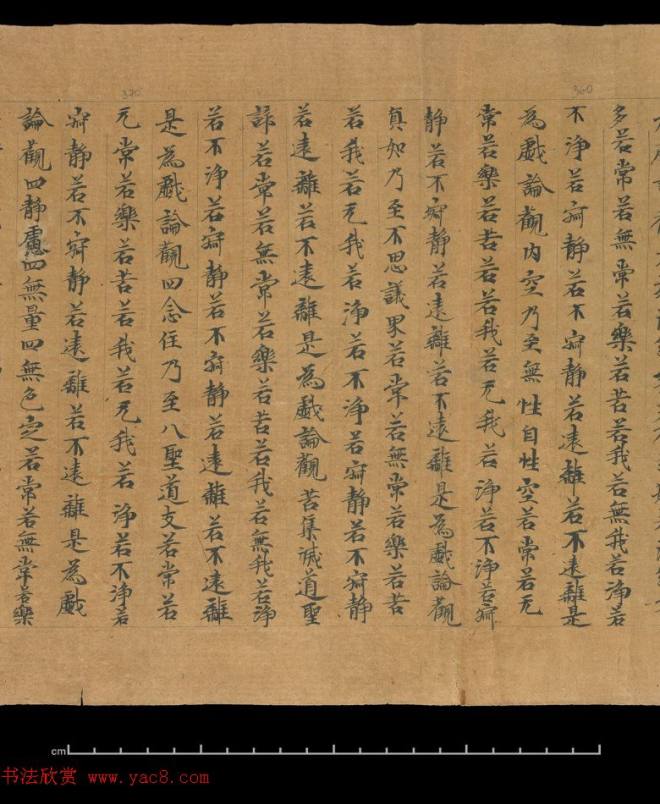 多若常若無常若樂若苦若我若無我若淨若
不淨若寂靜若不寂靜若遠離若不遠離是
為戱論觀内空乃至無性自性空若常若无
常若樂若苦若我若无我若淨若不淨若寂
靜若不寂靜若遠離若不遠離是為戱論觀
真如乃至不思議界若常若無常若樂若苦
若我若无我若淨若不淨若寂靜若不寂靜
若遠離若不遠離是為戱論觀苦集滅道聖
諦若常若無常若樂若苦若我若無我若淨
若不淨若寂靜若不寂靜若遠離若不遠離
是為戱論觀四念住乃至八聖道支若常若
无常若樂若苦若我若无我若淨若不淨若
寂靜若不寂靜若遠離若不遠離是為戱
論觀四靜慮四無量四無色定若常若無常若樂
370
360
cm
书法欣赏 www.yac8.com